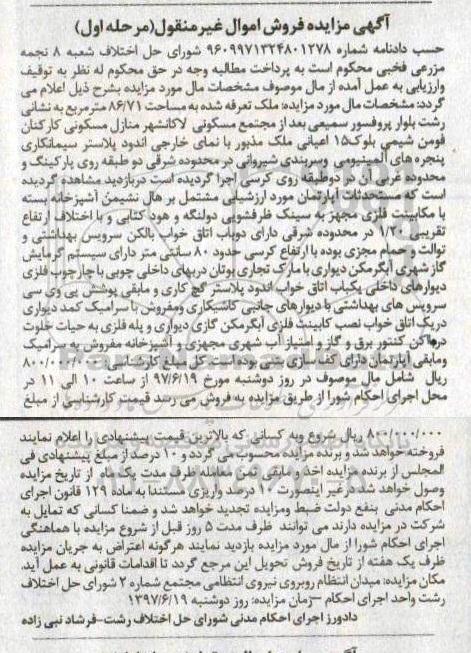 آگهی مزایده فروش اموال غیر منقول(مرحله اول)
حسب دادنامه شماره ۹۶۰۹۹۷۱۳۲۴۸۰۱۲۷۸ شورای حل اختلاف شعبه ۸ نجمه
مزرعی فخبی محکوم است به پرداخت مطالبه وجه در حق محکوم له نظر به توقیف
وارزیابی به عمل آمده از مال موصوف مشخصات مال مورد مزایده بشرح ذیل اعلام می
گردد: مشخصات مال مورد مزایده: ملک تعرفه شده به مساحت ۸۶/۷۱ متر مربع به نشانی
رشت بلوار پروفسور سمیعی بعد از مجتمع مسکونی لاکانشهر منازل مسکونی کارکنان
فومن شیمی بلوک۱۵ اعیانی ملک مذبور با نمای خارجی اندود پلاستر سیمانکاری
پنجره های آلمینیومی وسربندی شیروانی در محدوده شرقی دو طبقه روی پارکینگ و
محدوده غربی در دوطبقه روی کرسی اجرا گردیده است دربازدید مشاهده گردیده
است که مستحدثات آپارتمان مورد ارزشیابی مشتمل بر هال نشیمن آشپزخانه بسته
با مکابینت فلزی مجهز به سینک ظرفشویی دولنگه و هود کتابی و با اختلاف ارتفاع
تقریبی ۱/۲۰ در محدوده شرقی دارای دوباب اتاق خواب بالکن سرویس بهداشتی و
توالت و حمام مجزی بوده با ارتفاع کرسی حدود ۸۰ سانتی متر دارای سیستم گرمایش
گاز شهری آبگرمکن دیواری با مارک تجاری بوتان دربهای داخلی چوبی با چارچوب فلزی
دیوارهای داخلی یکباب اتاق خواب اندود پلاستر گچ کاری و مابقی پوشش پی وی سی
سرویس های بهداشتی با دیوارهای جانبی کاشیکاری ومفروش با سرامیک کمد دیواری
دریک اتاق خواب نصب کابینت فلزی آبگرمکن گازی دیواری و پله فلزی به حیات خلوت
دراماکن کنتور برق و گاز و امتیاز آب شهری مجهزی و آشپزخانه مفروش به سرامیک
ومابقی آپارتمان دارای کف سازی بتنی بوده است کل مبلغ کارشناسی ۸۰۰/۰۰۰/۰۰۰
ریال شامل مال موصوف در روز دوشنبه مورخ ۹۷/۶/۱۹ از ساعت ۱۰ الی ۱۱ در
محل اجرای احکام شورا از طریق مزایده به فروش می رسد قیمت کارشناسی از مبلغ
۸۰۰/۰۰۰/۰۰۰ ریال شروع وبه کسانی که بالاترین قیمت پیشنهادی را اعلام نمایند
فروخته خواهد شد و برنده مزایده محسوب می گردد و ۱۰ درصد از مبلغ پیشنهادی فی
المجلس از برنده مزایده اخذ و مابقی ثمن معامله ظرف مدت یک ماه از تاریخ مزایده
وصول خواهد شد درغیر اینصورت ۱۰ درصد واریزی مستندا به ماده ۱۲۹ قانون اجرای
احکام مدنی بنفع دولت ضبط ومزایده تجدید خواهد شد و ضمنا کسانی که تمایل به
شرکت در مزایده دارند می توانند ظرف مدت ۵ روز قبل از شروع مزایده با هماهنگی
اجرای احکام شورا از مال مورد مزایده بازدید نمایند هرگونه اعتراض به جریان مزایده
ظرف یک هفته از تاریخ فروش تحویل این مرجع گردد تا اقدامات قانونی به عمل آید.
مکان مزایده: میدان انتظام روبروی نیروی انتظامی مجتمع شماره ۲ شورای حل اختلاف
رشت واحد اجرای احکام –زمان مزایده: روز دوشنبه ۱۳۹۷/۶/۱۹
دادورز اجرای احکام مدنی شورای حل اختلاف رشت–فرشاد نبی زاده